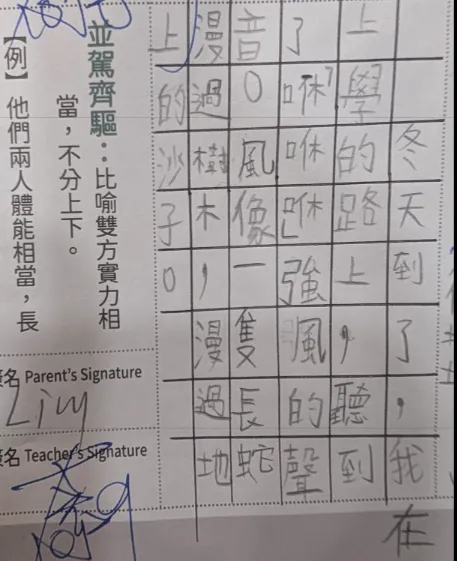 冬天到了,我在
上學的路上,聽到
了「咻咻咻」強風的聲
音。風像一隻長蛇
漫過樹木,漫過地
上的沙子。
並駕齊驅:比喻雙方實力相
當,不分上下。
【例】他們兩人體能相當,長
名 Parent's Signature
名 Teacher's Signature